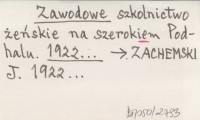 Zawodowe szkolnictwo
żeńskie na szerokiem Pod-
halu. 1922... → ZACHEMSKI
J. 1922...
bn050/2793